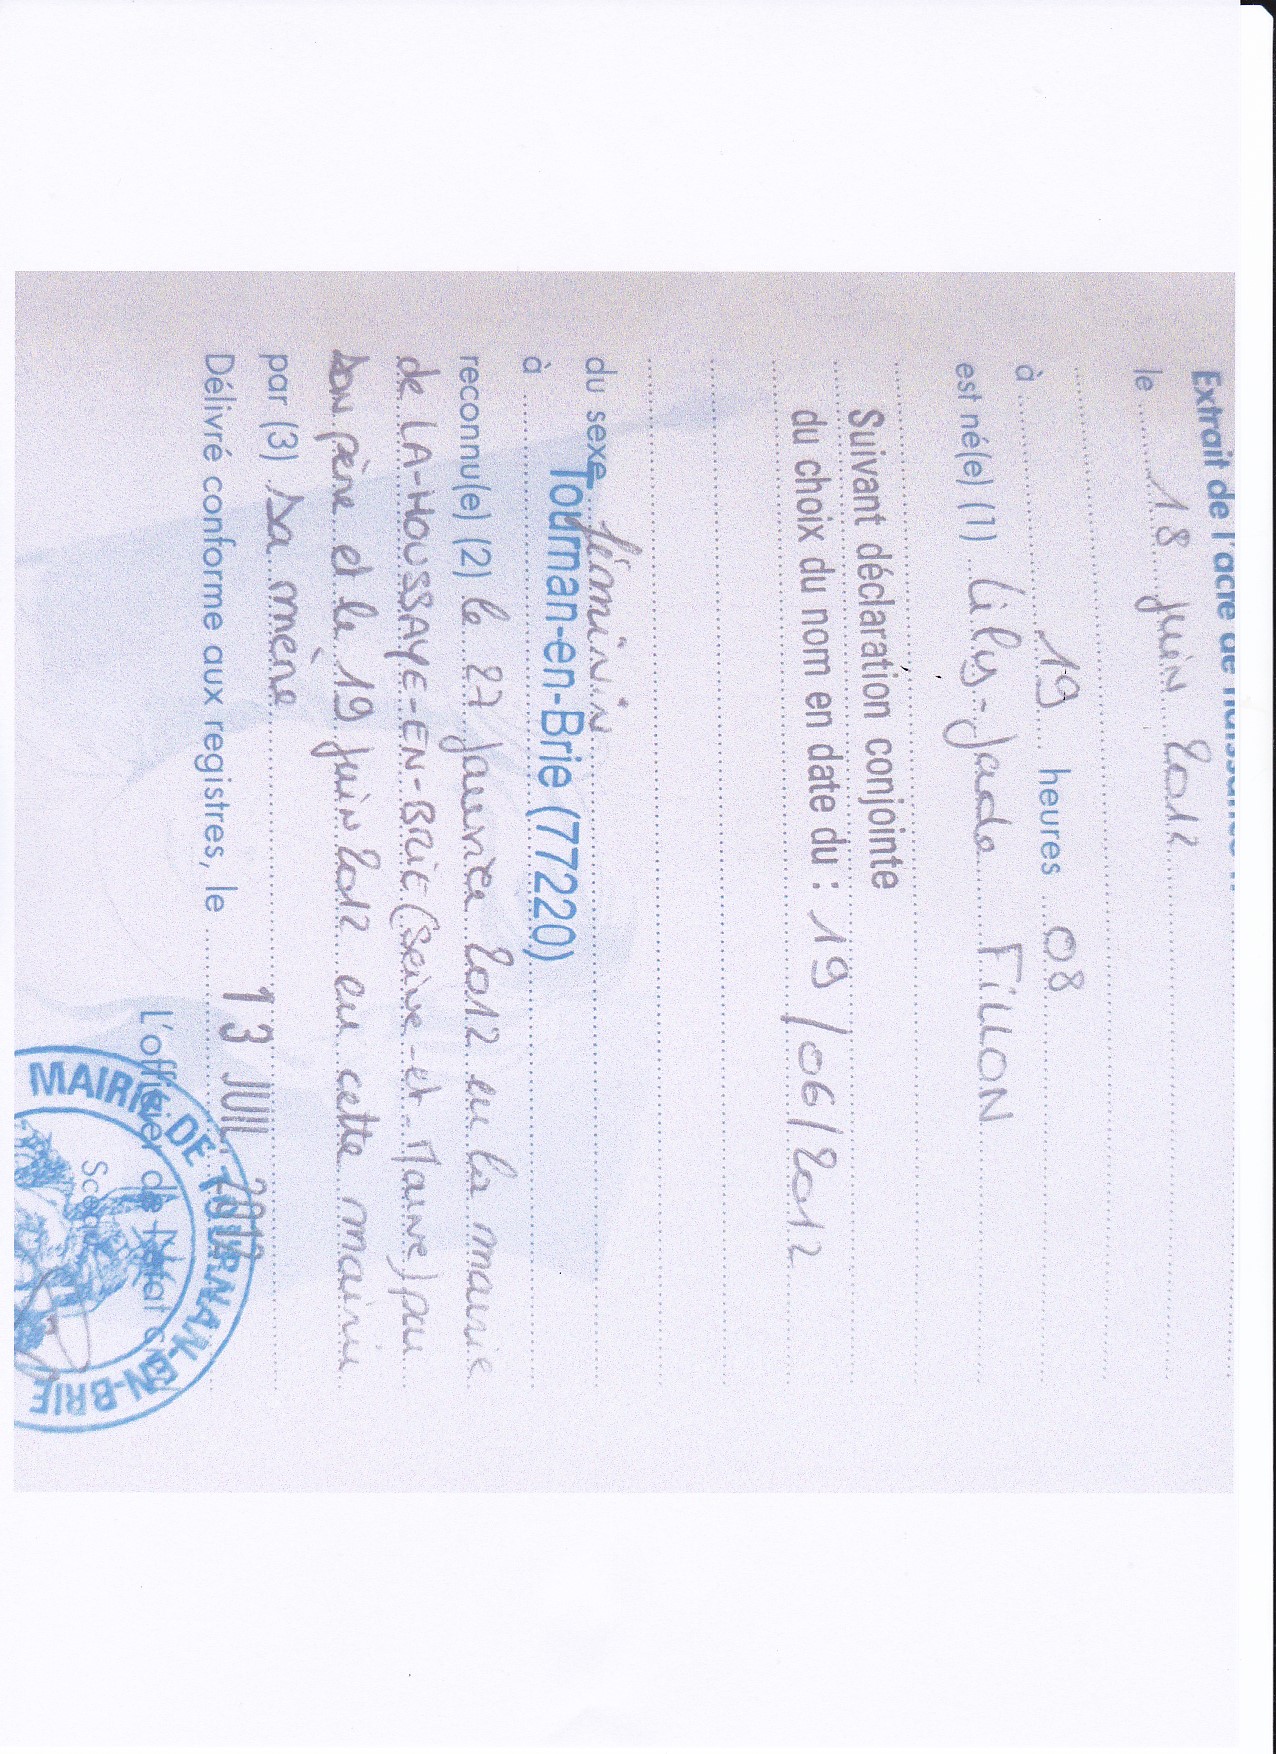 Extrait de l'acte de naissance n
le 18 juin 2012
à 19 heures 08
est né(e) (1) Lily-Jade FILLON
Suivant déclaration conjointe
du choix du nom en date du : 19/06/2012
du sexe féminin
à Tournan-en-Brie (77220)
reconnu(e) (2) le 27 janvier 2012 en la mairie
de LA-HOUSSAYE-EN-BRIE (Seine-et-Marne) par
son père et le 19 juin 2012 en cette mairie
par (3) sa mère
Délivré conforme aux registres, le 13 JUIL. 2012
L'officier de l'état civil
MAIRIE DE TOURNAN-EN-BRIE